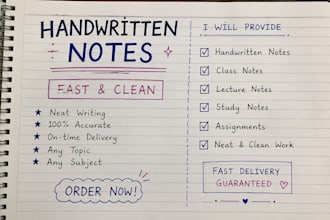 HANDWRITTEN
NOTES
FAST & CLEAN
Neat Writing
100% Accurate
On-time Delivery
Any Topic
Any Subject
ORDER NOW!
I WILL PROVIDE
Handwritten Notes
Class Notes
Lecture Notes
Study Notes
Assignments
Neat & Clean Work
FAST DELIVERY
GUARANTEED